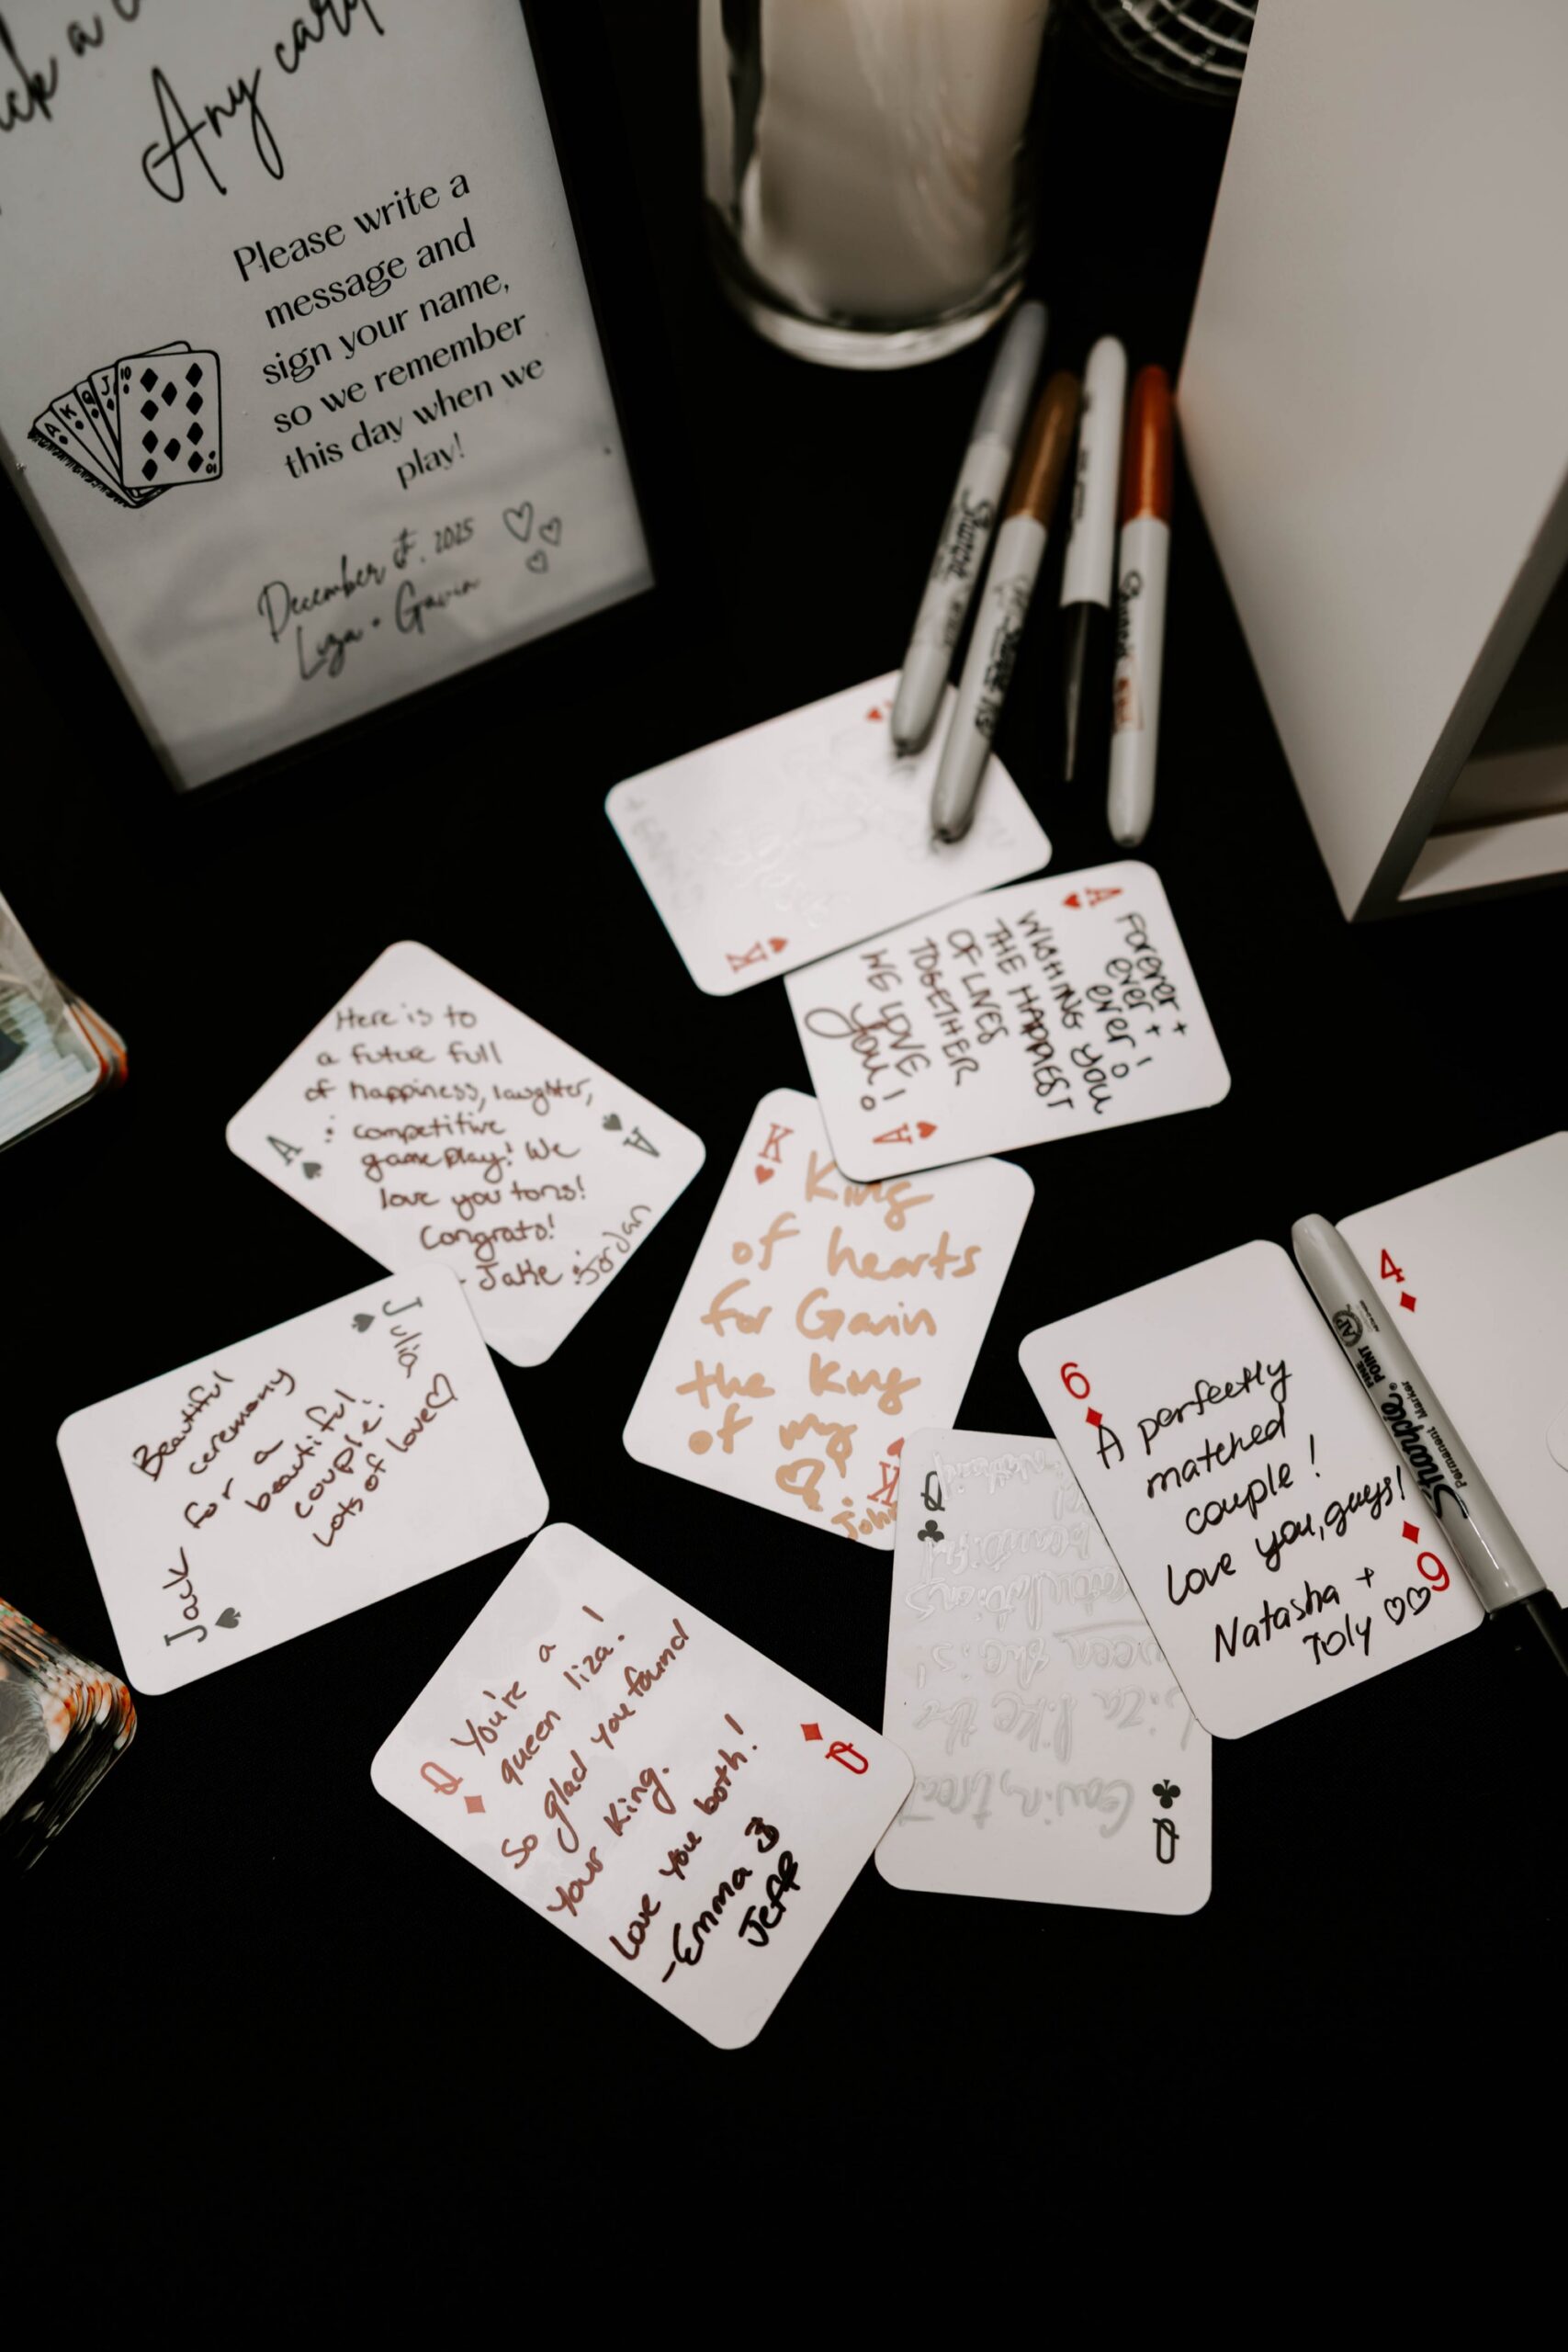 Any card
Please write a
message and
sign your name,
so we remember
this day when we
play!
December 5th, 2025
Liza + Gavin
A
K
Q
J
10
10
Sharpie
Sharpie
K
A
Forever +
ever +
ever!
WISHING YOU
THE HAPPIEST
OF LIVES
TOGETHER
WE LOVE
you!
A
A
Here is to
a future full
of happiness, laughter,
competitive
gameplay! We
love you tons!
Congrats!
- Jake & Jordan
A
K
King
of hearts
for Gavin
the King
of my
K
John
J
Julia
Beautiful
ceremony
for a
beautiful
couple!
Lots of love
Jack
Q
You're a
queen liza!
So glad you found
your King.
Love you both!
-Emma &
Jeff
Q
Q
beautiful
Liza like the
queen she is!
Gavin, treat
Q
6
A perfectly
matched
couple!
Love you, guys!
Natasha +
Toly
6
4
Sharpie®
FINE POINT
Permanent Marker
AP